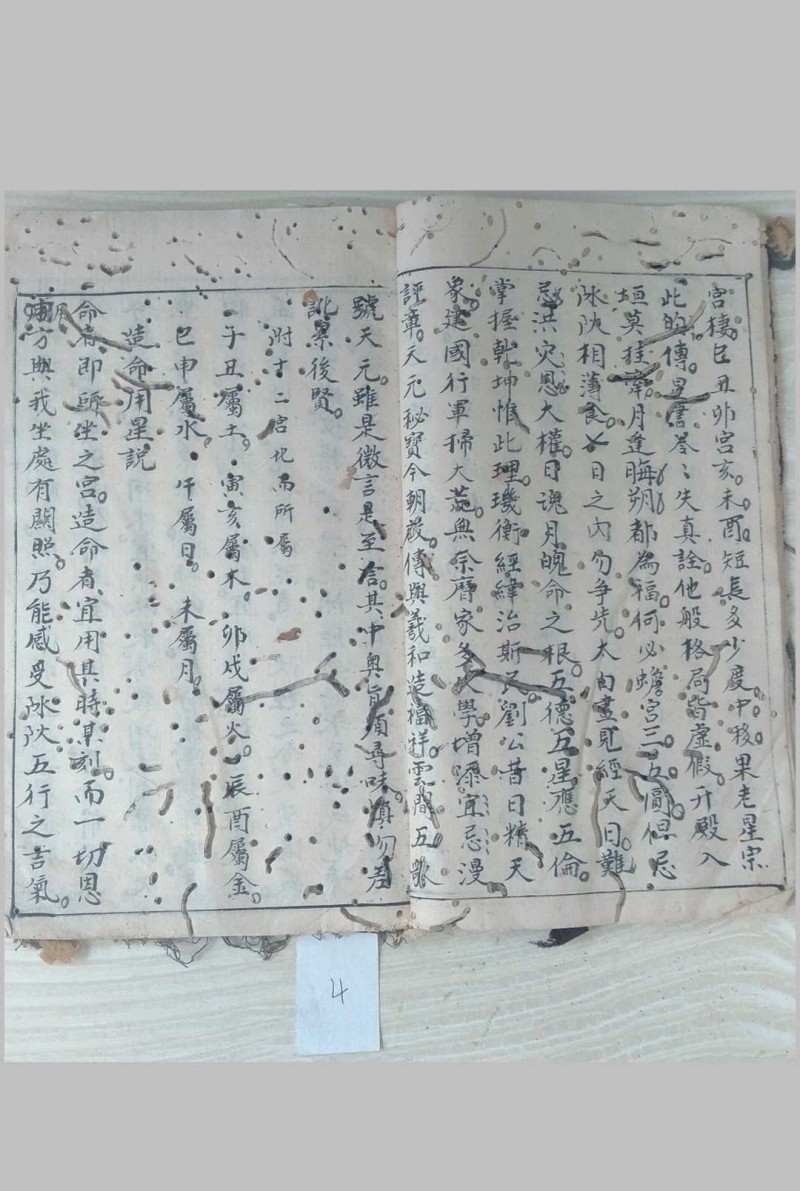 宮棲。巳丑卯宮亥未酉。短長多少度中移。果老星宗
此的傳。星書卷々失真詮。他般格局皆虛假。升殿入
垣莫挂牽。月逢晦朔都為福。何必蟾宮三五圓。但忌
陰陽相薄食。日之內勿爭先。太白晝見經天日。難
忌洪災。恩大權。日魂月魄命之根。五德五星應五倫。
掌握乾坤惟此理。璣衡經緯治斯民。劉公昔日精天
象。建國行軍掃大。無奈曆家多學。增添宜忌漫
評章。天元秘寶今朝啟。傳與羲和造福祥。雲間五歌
號天元。雖是微言是至言。其中奥旨須尋味。慎勿差
訛累後賢。
附十二宮化而所屬
子丑屬土。寅亥屬木。卯戌屬火。辰酉屬金。
巳申屬水。午屬日。未屬月。
造命用星說
命者即所坐之宮。造命者宜用某時某刻。而一切恩
用方與我坐處有關照。乃能感受陰陽五行之吉氣。
4